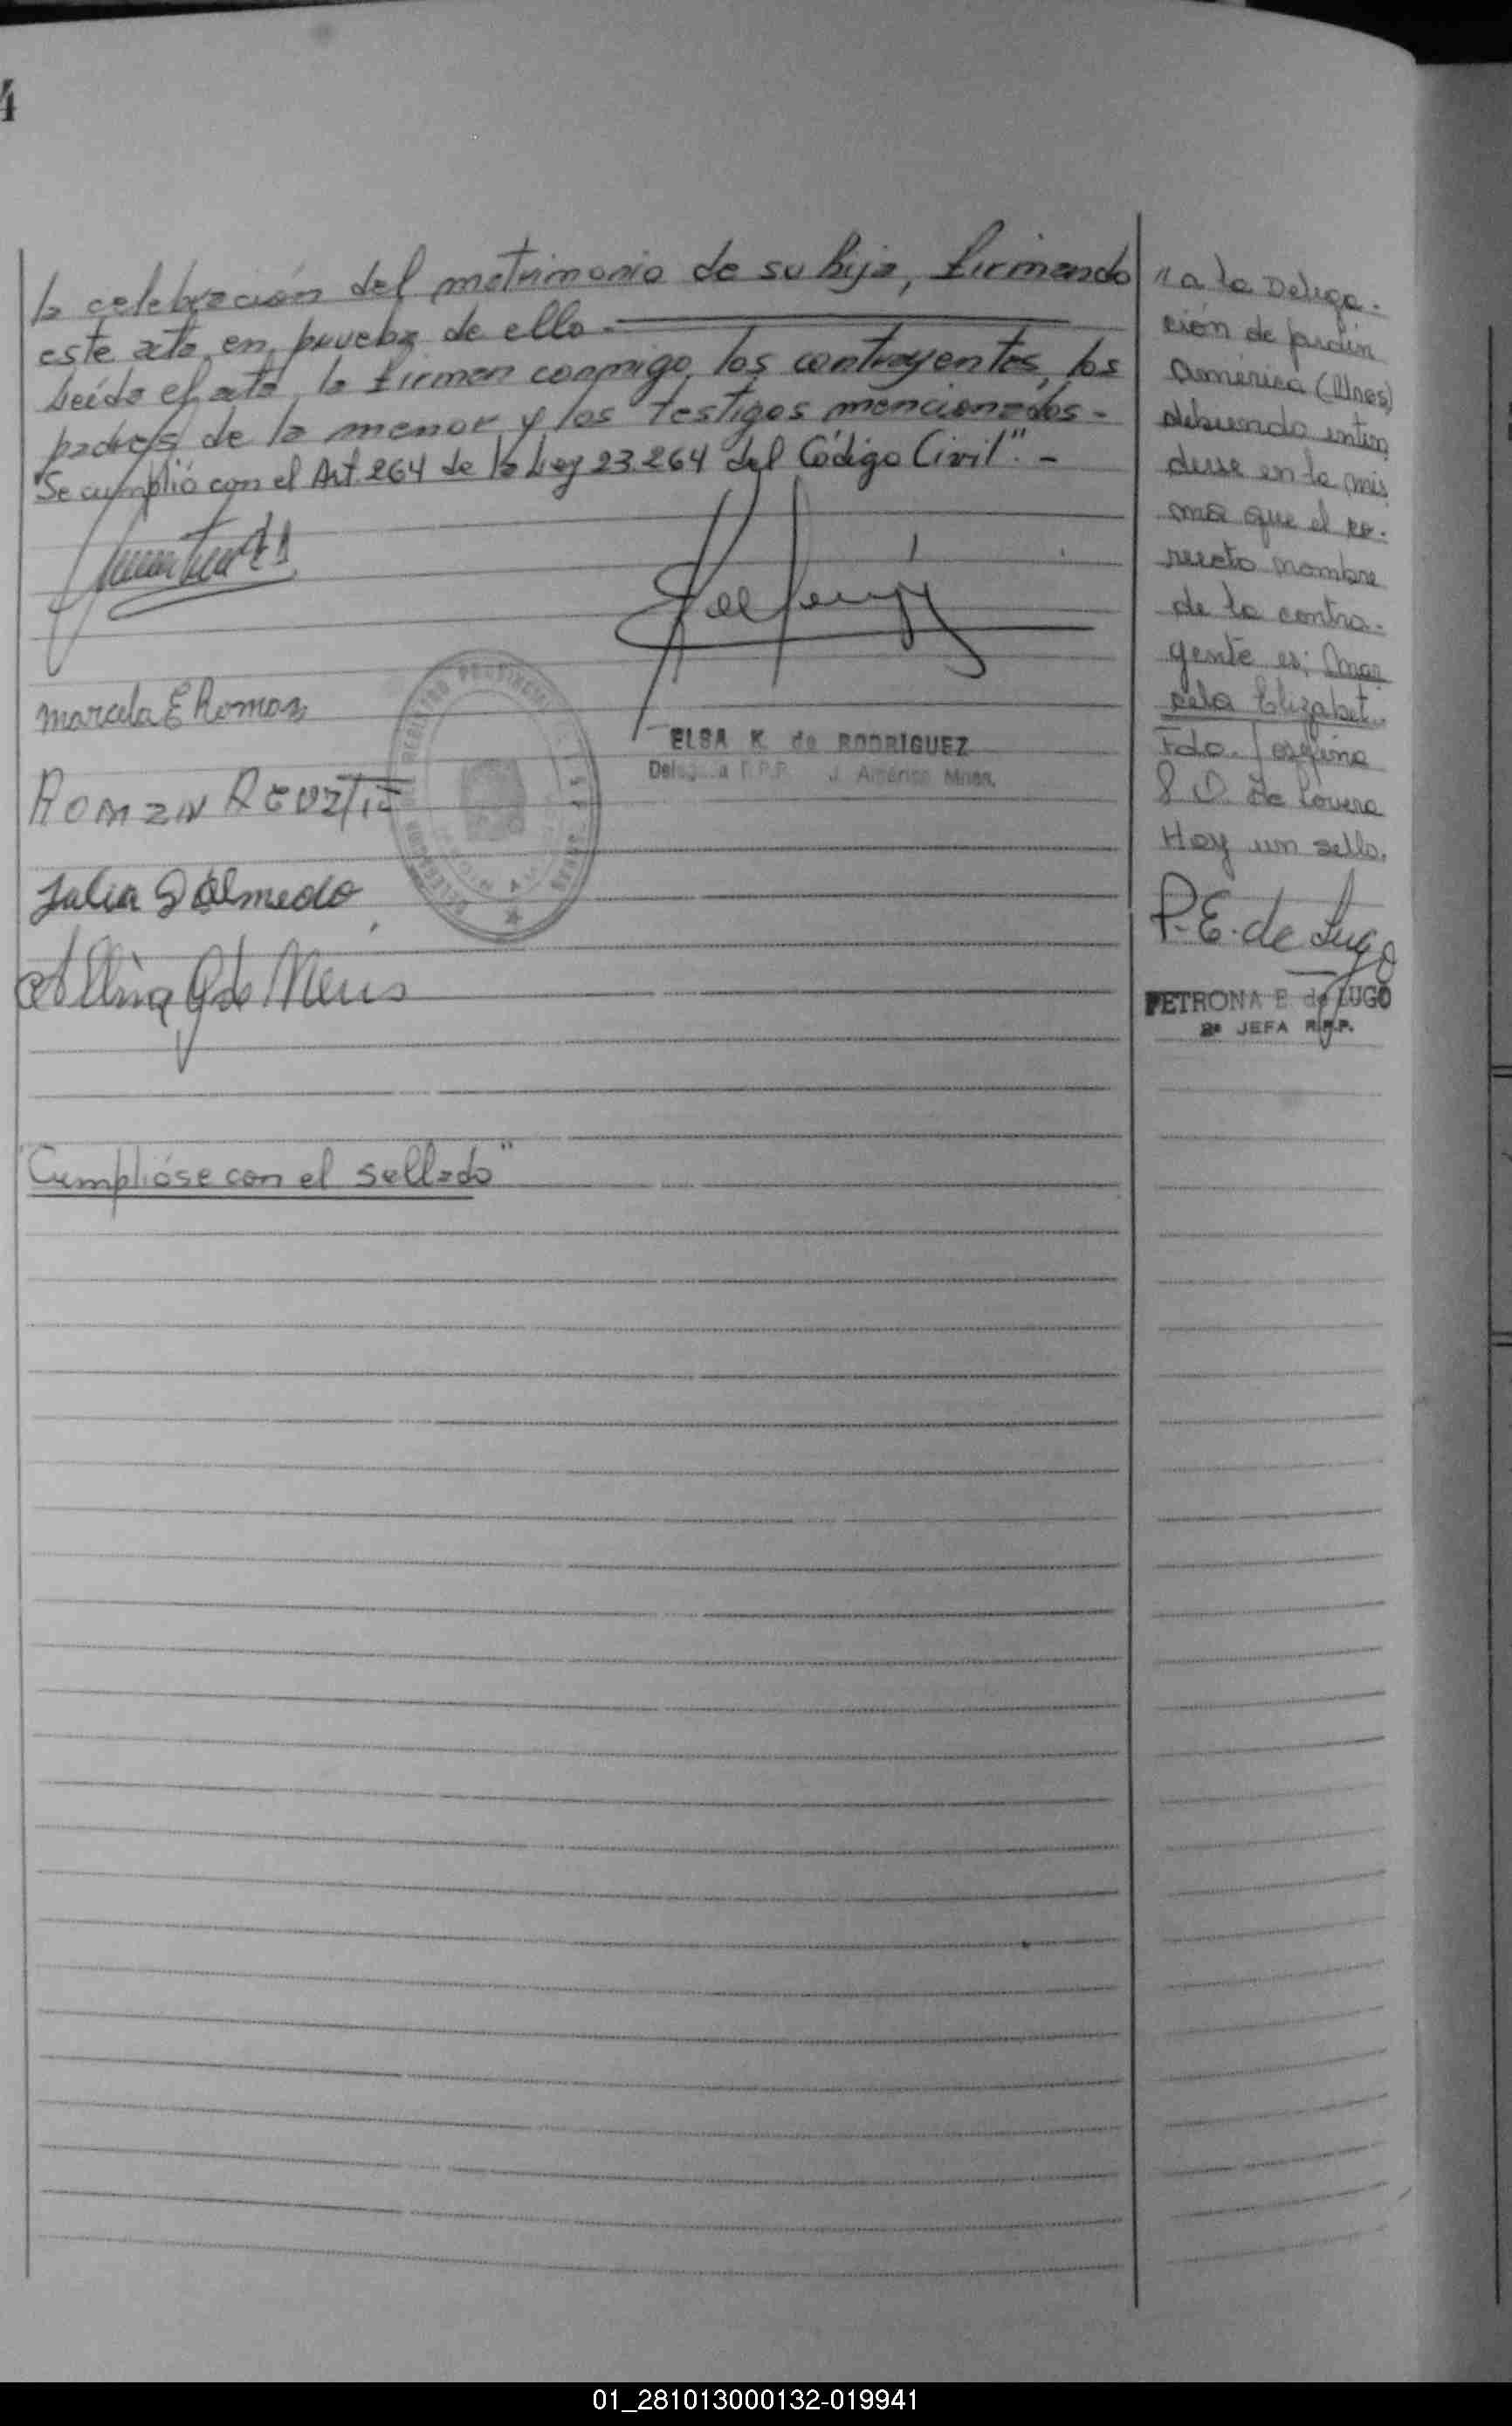 4
la celebración del matrimonio de su hija, firmando
este acta en prueba de ello.-
Leída el acta, la firman conmigo, los contrayentes, los
padres de la menor y los testigos mencionados-
"Se cumplió con el Art. 264 de la Ley 23.264 del Código Civil".-
Marcela E Roman
ELSA K. de RODRIGUEZ
J. América Mnes.
ROMAN AGUSTIN
Julia D Olmedo
REGISTRO PROVINCIAL
"Cumplióse con el sellado"
"a la Delega-
ción de Jardín
América (Mnes)
debiendo enten
derse en la mis
ma que el co-
rrecto nombre
de la contra-
yente es: Mar
cela Elizabet..
Fdo. Josefina
S. D. de Lovera
Hay un sello.
P. E. de Lugo
PETRONA E. de LUGO
2ª JEFA R.P.P.
01_281013000132-019941